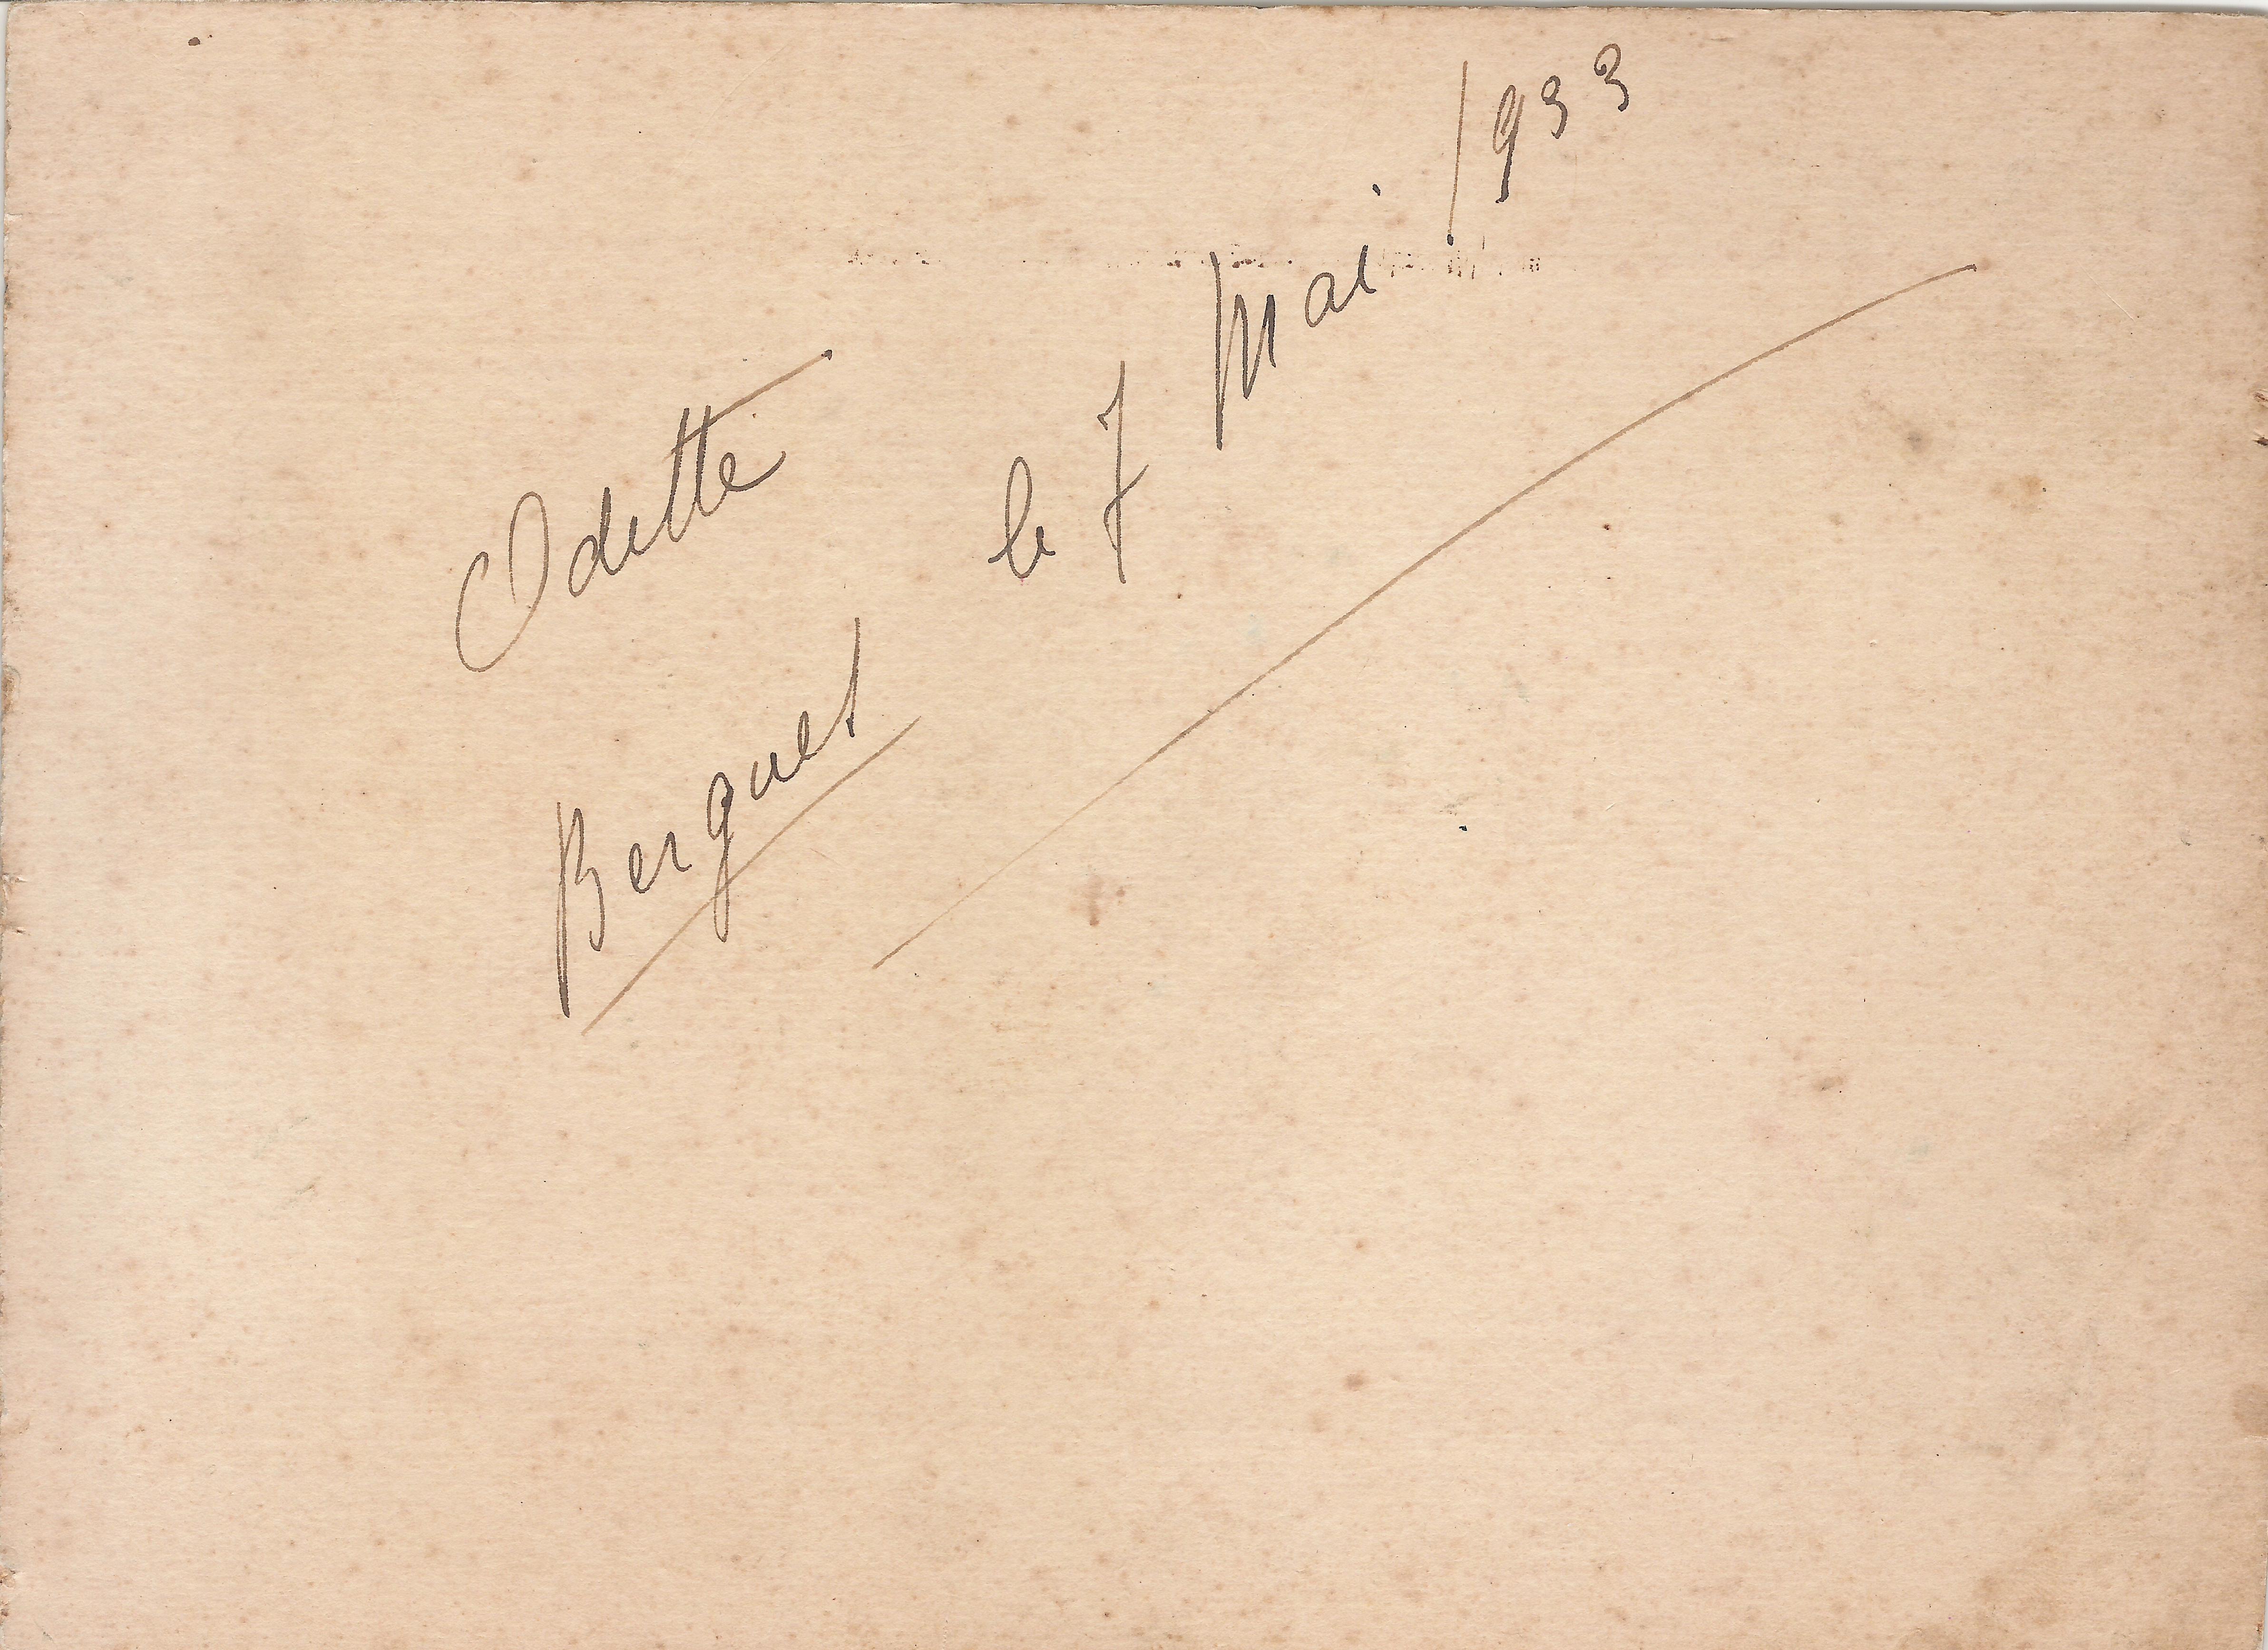 Odette
Berguet le 7 Mai 1933